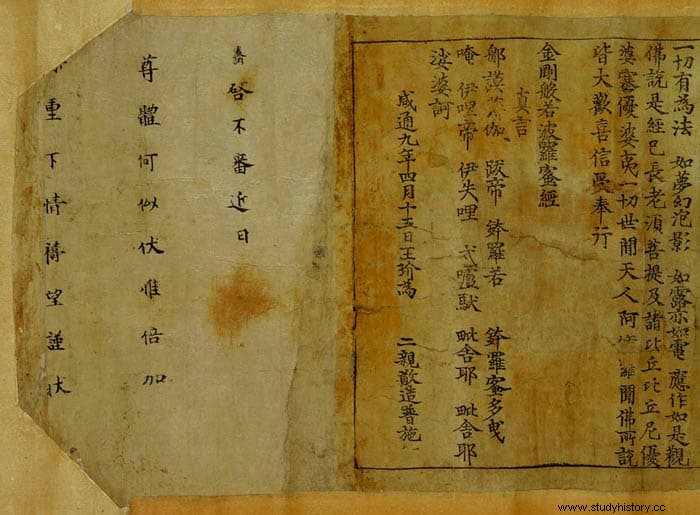 一切有為法 如夢幻泡影 如露亦如電 應作如是觀
佛說是經已長老須菩提及諸比丘比丘尼優
婆塞優婆夷一切世間天人阿修羅聞佛所說
皆大歡喜信受奉行
金剛般若波羅蜜經
真言
郍謨薄伽 跋帝 鉢羅若 鉢羅蜜多曳
唵 伊哩帝 伊失哩 戍嚧馱 毗舍耶 毗舍耶
娑婆訶
咸通九年四月十五日王玠為 二親敬造普施
啓不審近日
尊體何似伏惟倍加
重下情禱望謹狀
www.studyhistory.cc